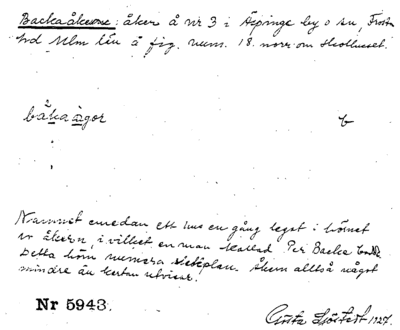 Backaåkrarne: åker å nr 3 i Äspinge by o sn, Frosta
hrd Mlm län å fig. num. 18 norr om Skolhuset.
båka ågor b
Namnet emedan ett hus en gång legat i hörnet
av åkern, i vilket en man kallad Per Backa bodde
Detta hörn numera vägplan. Åkern alltså något
mindre än kartan utvisar.
Nr 5943.
Gösta 1927.